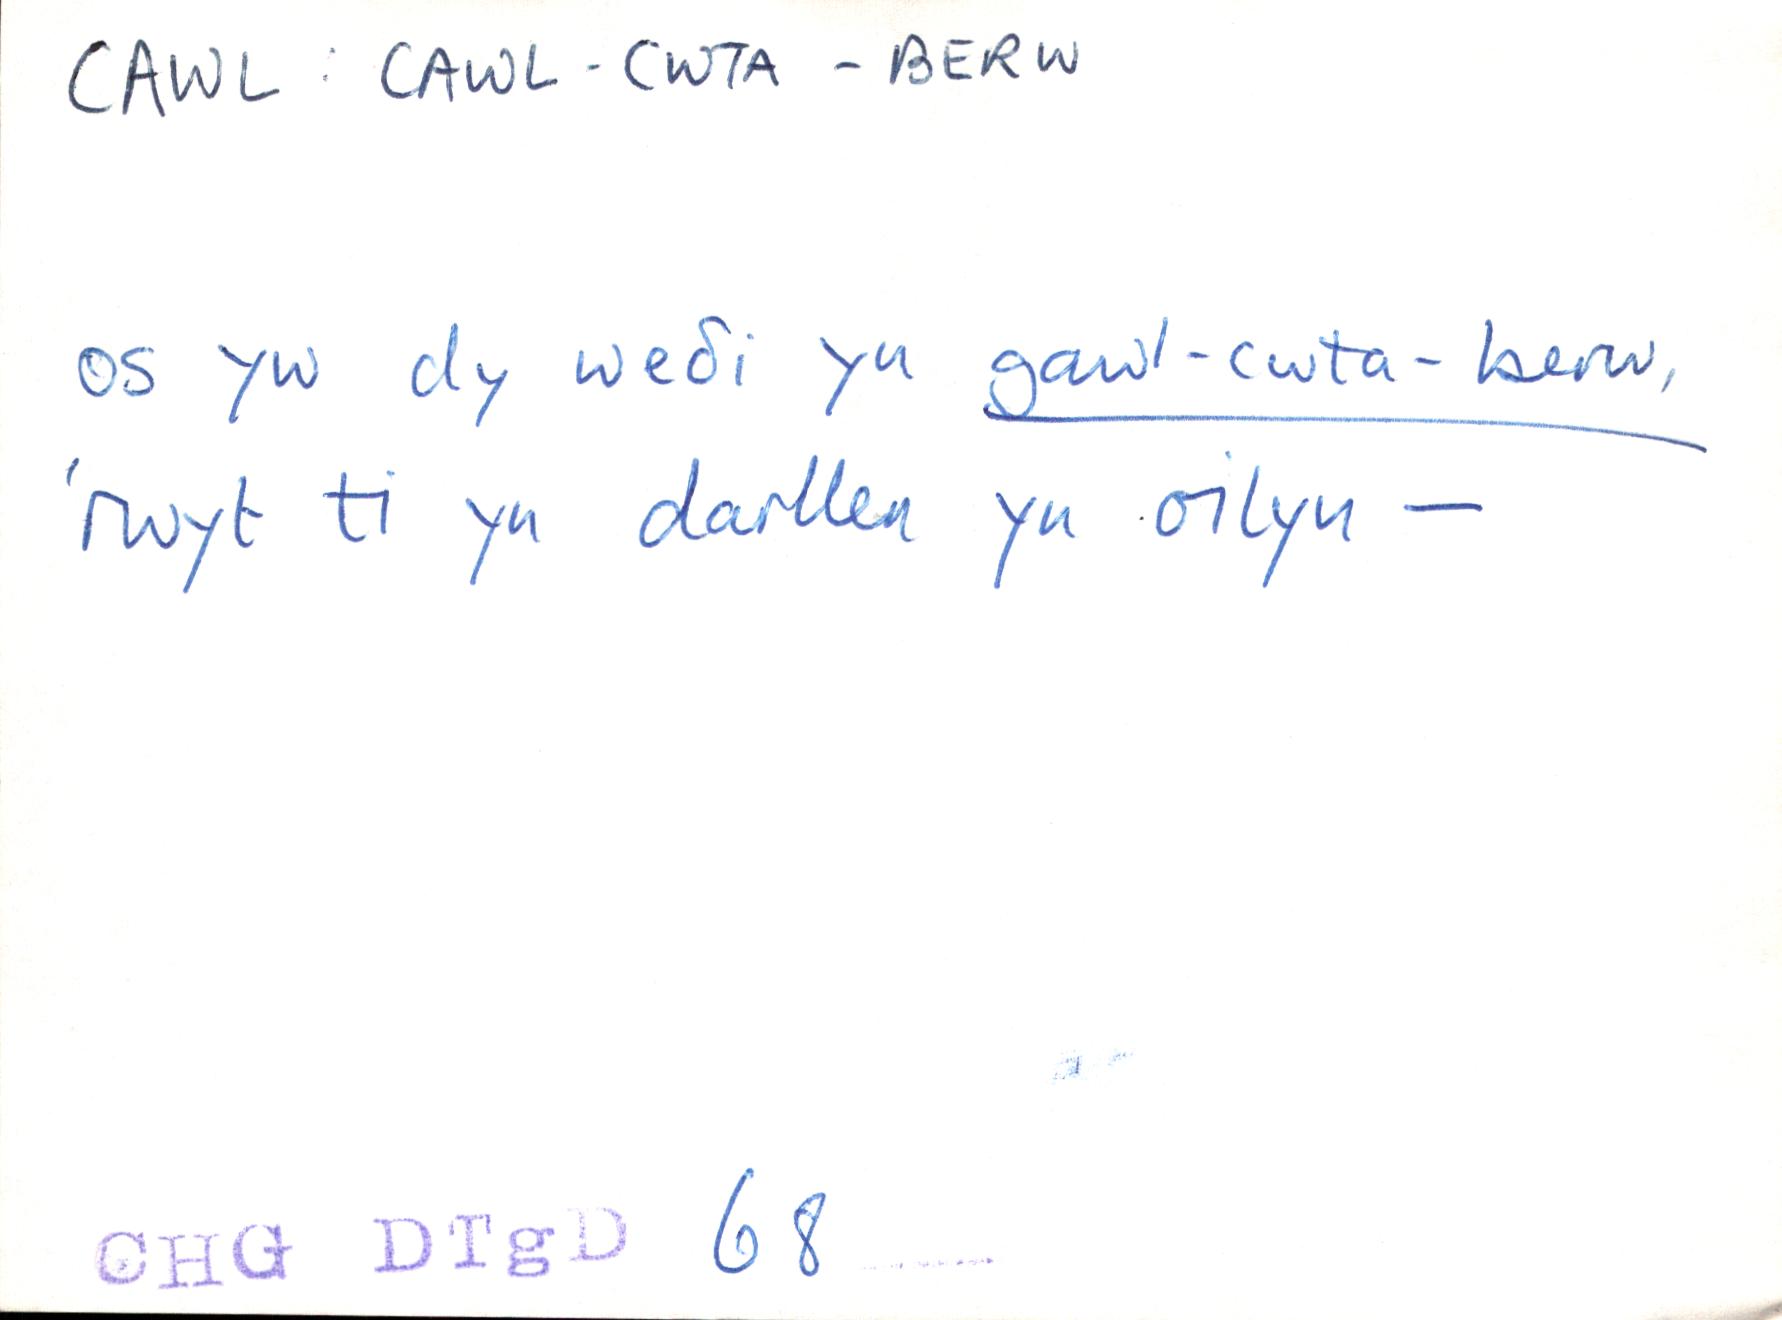 CAWL : CAWL - CWTA - BERW
os yw dy weδi yn gawl-cwta-berw,
'rwyt ti yn darllen yn oilyn —
CHG DTgD 68